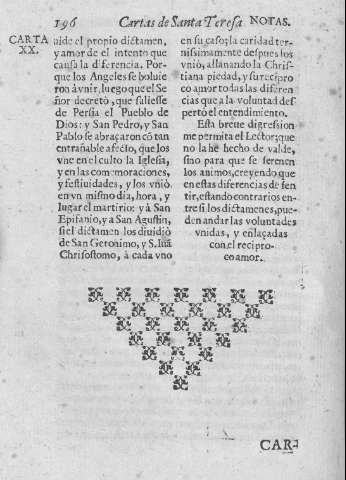 196 Cartas de Santa Teresa NOTAS.
CARTA
XX.
uide el propio dictamen,
y amor de el intento que
causa la diferencia. Por-
que los Angeles se boluie
ron à vnir, luego que el Se
ñor decretò, que saliesse
de Persia el Pueblo de
Dios: y San Pedro, y San
Pablo se abraçaron cõ tan
entrañable afecto, que los
vne en el culto la Iglesia,
y en las comemoraciones,
y festiuidades, y los vniò
en vn mismo dia, hora, y
lugar el martirio: y à San
Epifanio, y a San Agustin,
si el dictamen los diuidiò
de San Geronimo, y S. Iuã
Chrisostomo, à cada vno
en su caso; la caridad ter-
nissimamente despues los
vniò, allanando la Chris-
tiana piedad, y su recipro
co amor todas las diferen
cias que a la voluntad des
pertò el entendimiento.
Esta breue digression
me permita el Lector; que
no la hè hecho de valde,
sino para que se serenen
los animos, creyendo que
en estas diferencias de sen
tir, estando contrarios en-
tre si los dictamenes, pue-
den andar las voluntades
vnidas, y enlaçadas
con el recipro-
co amor.
CAR-